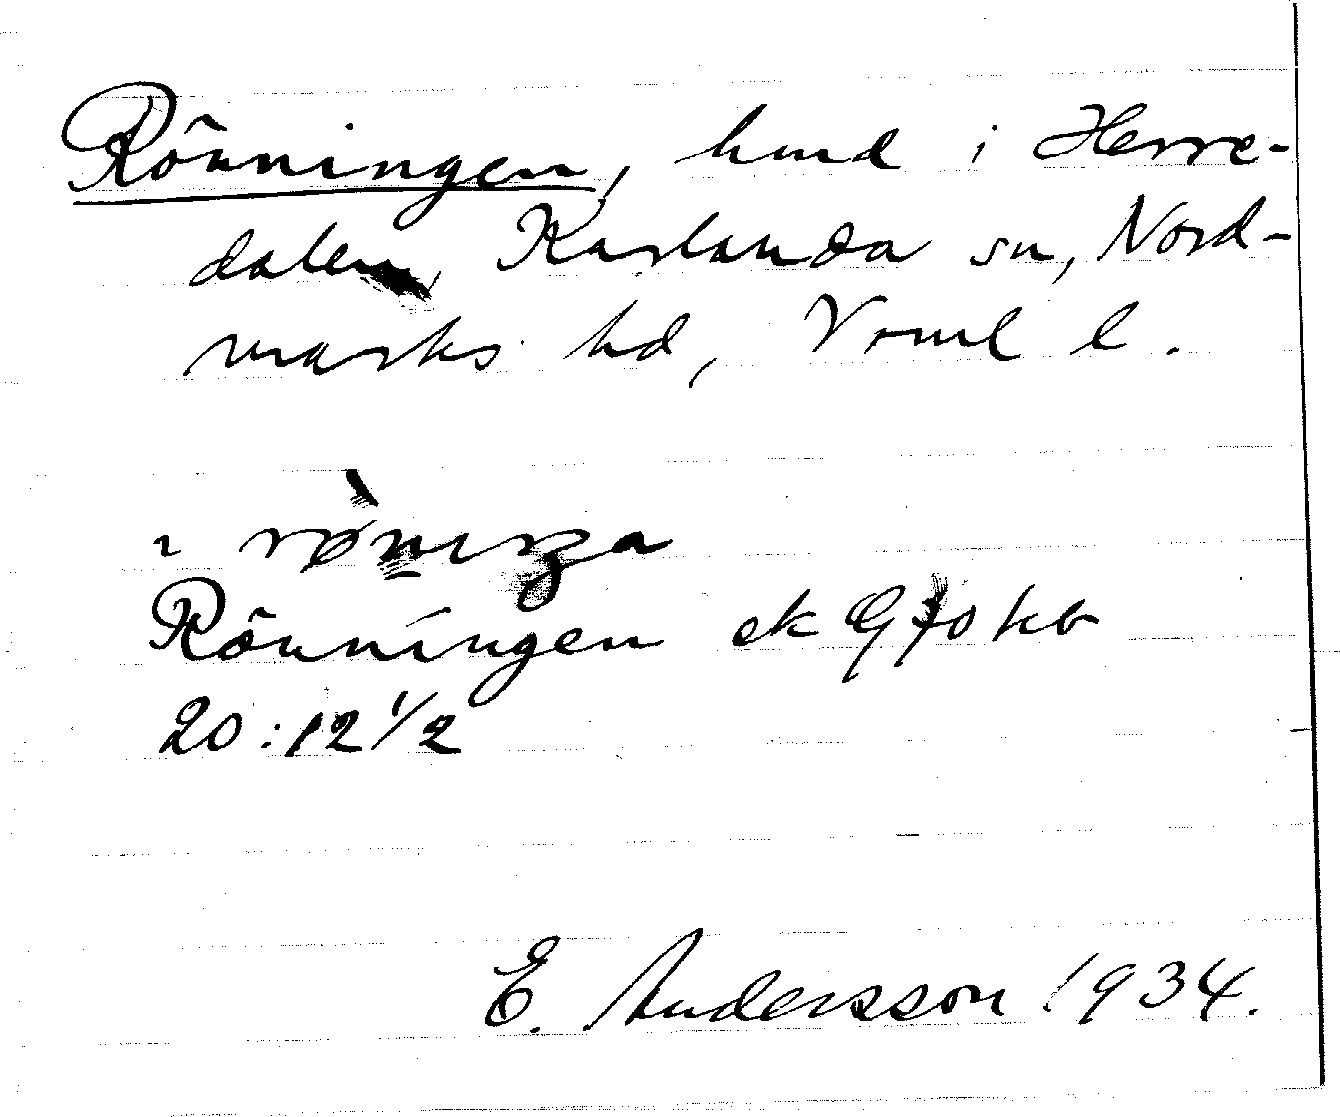 Rönningen, hmd i Herre-
dalen, Karlanda sn, Nord-
marks hd, Vrml l.
i
Rönningen ek G
20:12 1/2
E. Andersson 1934.